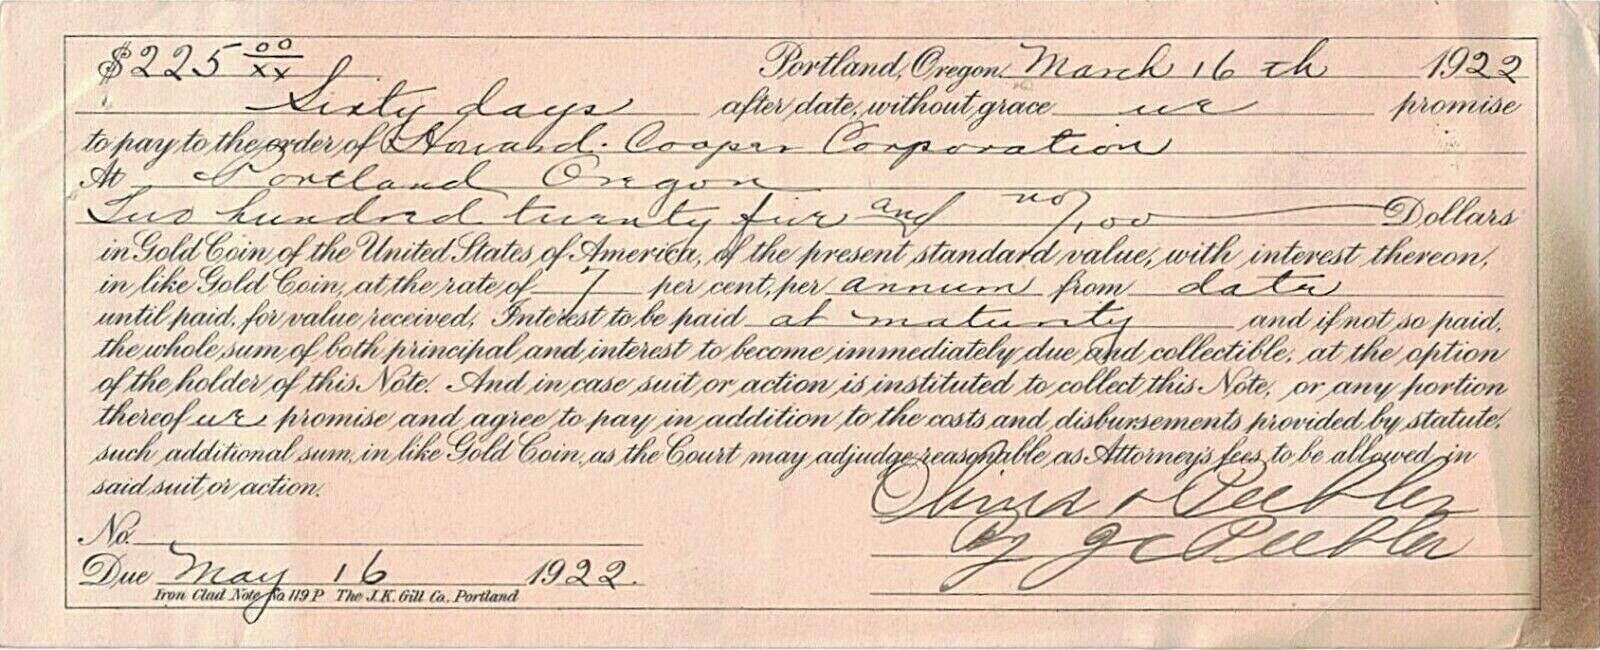 $225 00/xx Portland, Oregon, March 16th 1922
Sixty days after date, without grace we promise
to pay to the order of Howard-Cooper Corporation
At Portland Oregon
Two hundred twenty five and no/100 Dollars
in Gold Coin of the United States of America, of the present standard value, with interest thereon,
in like Gold Coin, at the rate of 7 per cent, per annum from date
until paid, for value received, Interest to be paid at maturity and if not so paid,
the whole sum of both principal and interest to become immediately due and collectible, at the option
of the holder of this Note. And in case suit or action is instituted to collect this Note, or any portion
thereof we promise and agree to pay in addition to the costs and disbursements provided by statute,
such additional sum, in like Gold Coin, as the Court may adjudge reasonable as Attorney's fees to be allowed in
said suit or action.
& Peebler
By J C Peebler
No.
Due May 16 1922.
Iron Clad Note No 119 P The J.K. Gill Co., Portland